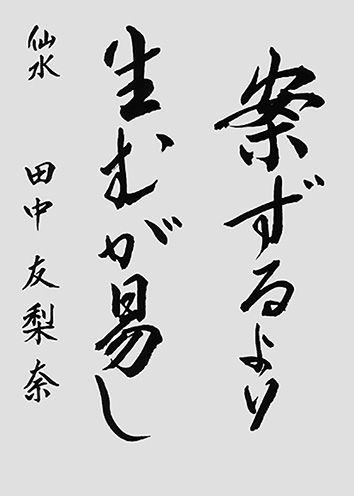 案ずるより
生むが易し
仙水 田中友梨奈